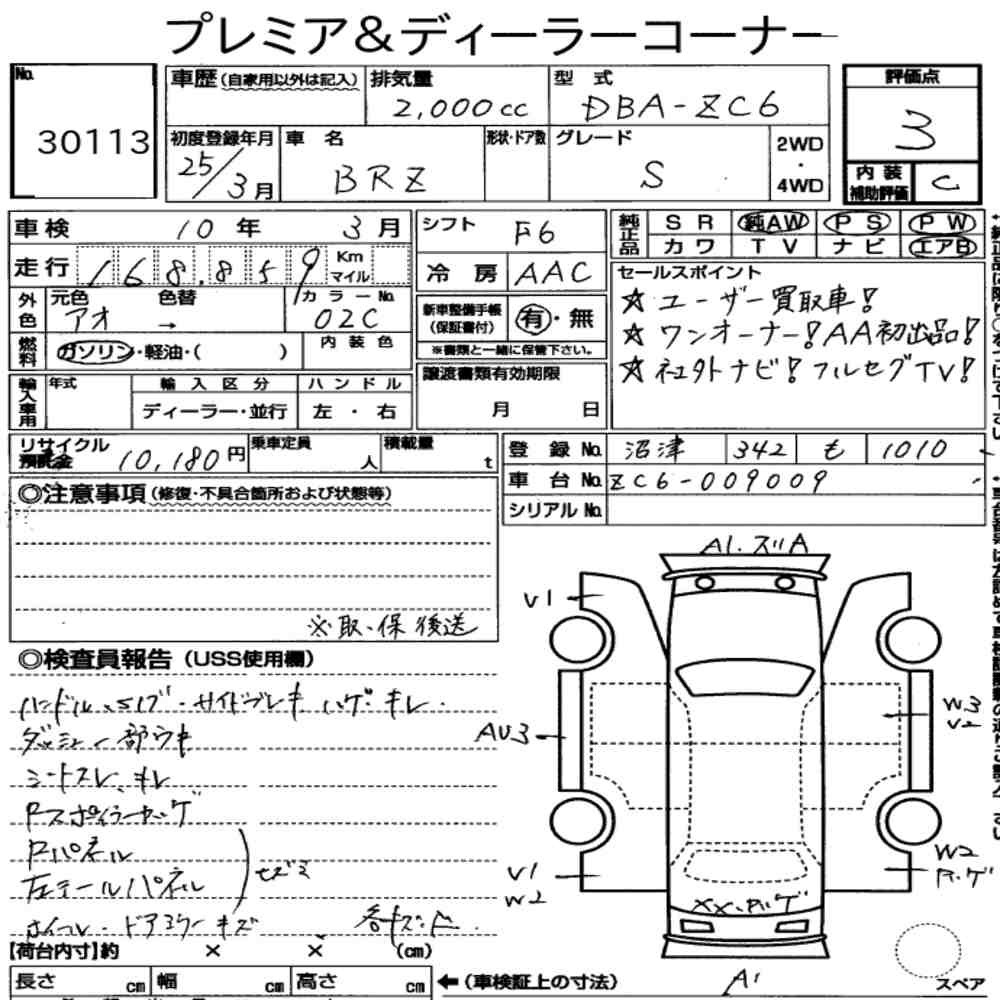 プレミア&ディーラーコーナー
No. 30113
車歴(自家用以外は記入) 排気量 2,000cc 型式 DBA-ZC6
初度登録年月 25/3月 車名 BRZ 形状・ドア数 グレード S 2WD・4WD
評価点 3
内装補助評価 C
車検 10年 3月
走行 168,859 Km マイル
外色 元色 アオ → 色替 カラーNo. 02C
燃料 ガソリン・軽油・( ) 内装色
輸入車用 年式 輸入区分 ディーラー・並行 ハンドル 左・右
シフト F6
冷房 AAC
新車整備手帳(保証書付) 有・無
※書類と一緒に保管下さい。
譲渡書類有効期限
月 日
純正品 SR 純AW PS PW
カワ TV ナビ エアB
セールスポイント
☆ユーザー買取車!
☆ワンオーナー!AA初出品!
☆社外ナビ!フルセグTV!
リサイクル預託金 10,180円 乗車定員 人 積載量 t
登録No. 沼津 342 も 1010
車台No. ZC6-009009
シリアルNo.
◎注意事項(修復・不具合箇所および状態等)
※取、保後送
◎検査員報告(USS使用欄)
ハンドル、シフトノブ・サイドブレーキ ハゲ・キレ
ダッシュ一部ウキ
シートスレ、キレ
Rパネル
左テールパネル
ホイール・ドアミラーキズ
A1.スリA
V1
AU3
V1
W2
W3
V2
W2
XX・ハゲ
A1
【荷台内寸】約 × × (cm)
長さ cm 幅 cm 高さ cm ←(車検証上の寸法)
スペア